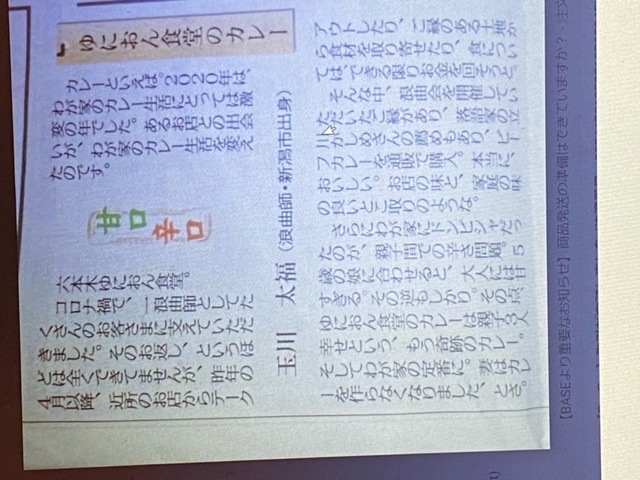 ゆにおん食堂のカレー
玉川　太福（浪曲師・新潟市出身）
カレーといえば。2020年は、
わが家のカレー生活にとっては激
変の年でした。あるお店との出会
いが、わが家のカレー生活を変え
たのです。
甘口
辛口
六本木ゆにおん食堂。
コロナ禍で、一浪曲師としてた
くさんのお客さまに支えていただ
きました。そのお返し、というほ
どは全くできてませんが、昨年の
4月以降、近所のお店からテーク
アウトしたり、ご縁のある土地か
ら食材を取り寄せたり、食につい
ては、できる限りお金を回そうと。
そんな中、浪曲会を開催してい
ただいたご縁があり、落語家の立
川かしめさんの薦めもあり、ビー
フカレーを通販で購入。本当に
おいしい。お店の味と、家庭の味
の良いとこ取りのような。
さらにわが家にドンピシャだっ
たのが、親子間での辛さ問題。5
歳の娘に合わせると、大人には甘
すぎる。その逆もしかり。その点、
ゆにおん食堂のカレーは親子3人
幸せという、もう奇跡のカレー。
そしてわが家の定番に。妻はカレ
ーを作らなくなりました、とさ。
【BASEより重要なお知らせ】商品発送の準備はできていますか？　注文